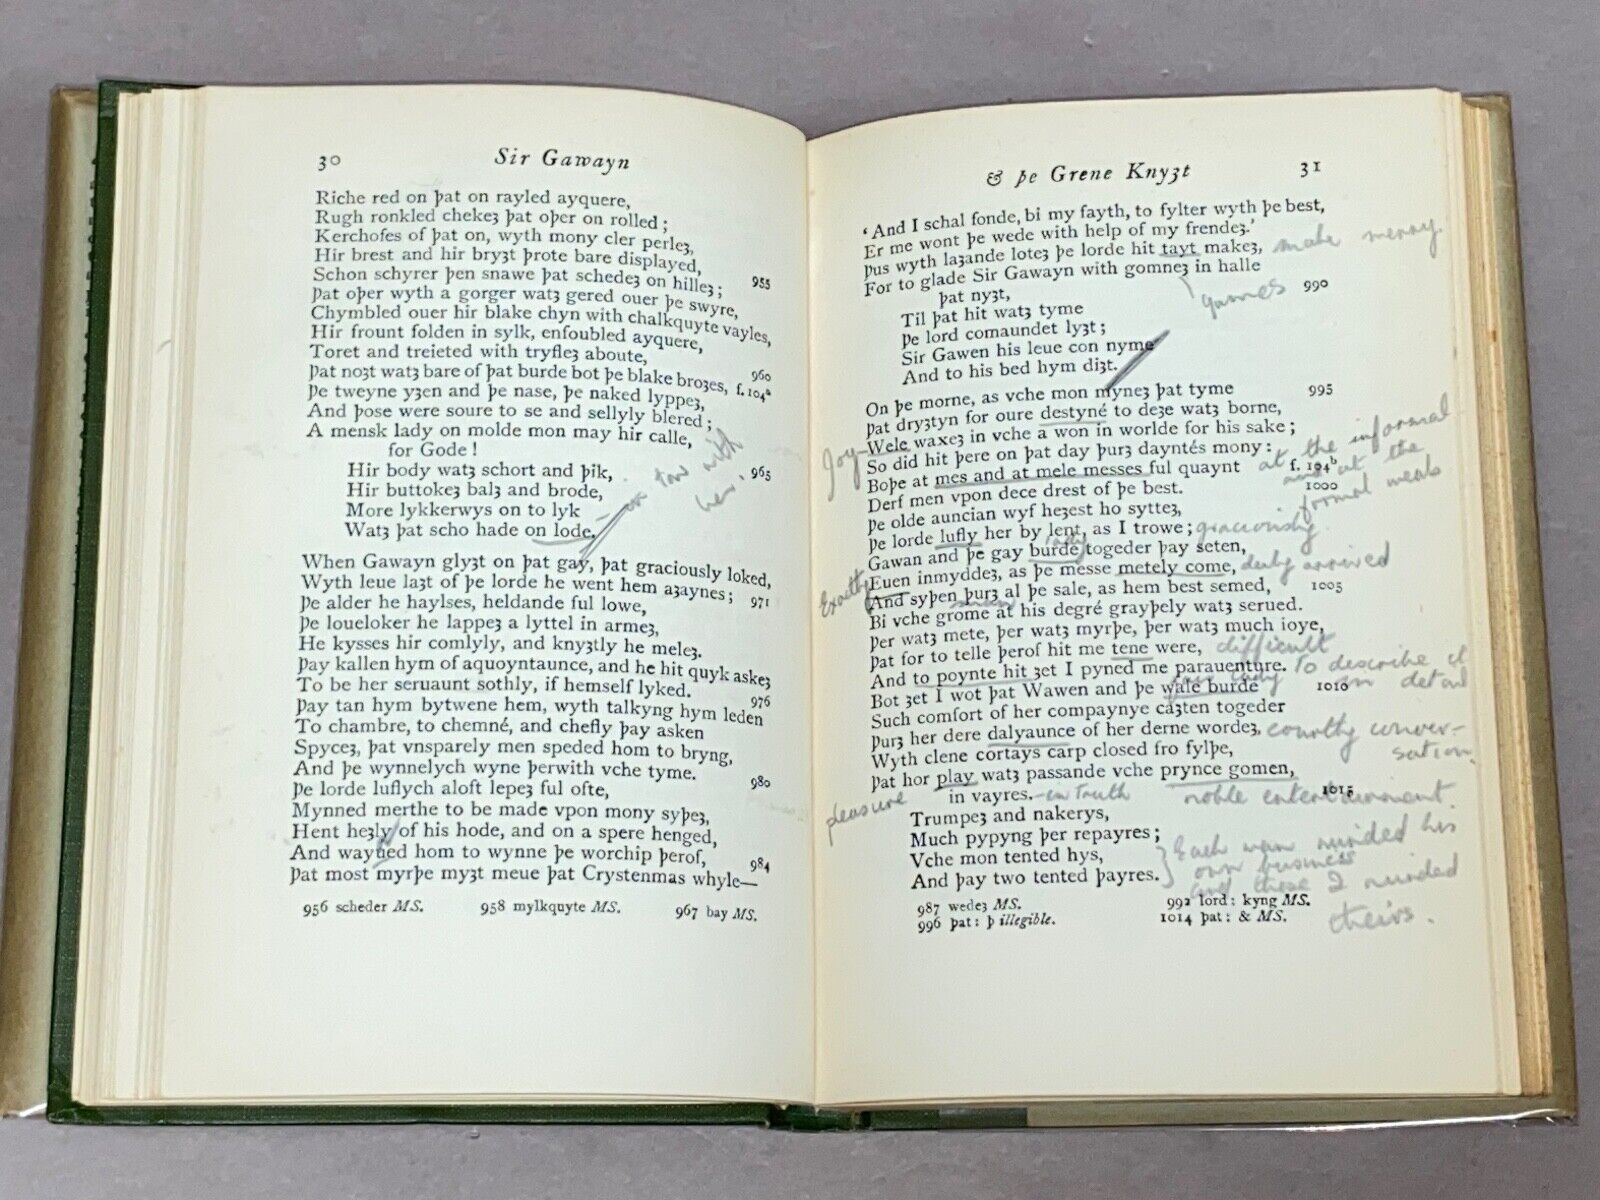 30 Sir Gawayn
Riche red on þat on rayled ayquere,
Rugh ronkled chekeȝ þat oþer on rolled;
Kerchofes of þat on, wyth mony cler perleȝ,
Hir brest and hir bryȝt þrote bare displayed,
Schon schyrer þen snawe þat schedeȝ on hilleȝ; 955
Þat oþer wyth a gorger watȝ gered ouer þe swyre,
Chymbled ouer hir blake chyn with chalkquyte vayles,
Hir frount folden in sylk, enfoubled ayquere,
Toret and treieted with tryfleȝ aboute,
Þat noȝt watȝ bare of þat burde bot þe blake broȝes, 960
Þe tweyne yȝen and þe nase, þe naked lyppeȝ, f. 104ᵃ
And þose were soure to se and sellyly blered;
A mensk lady on molde mon may hir calle,
for Gode!
Hir body watȝ schort and þik, 965
Hir buttokeȝ balȝ and brode,
More lykkerwys on to lyk
Watȝ þat scho hade on lode. - on tow with her.
When Gawayn glyȝt on þat gay, þat graciously loked,
Wyth leue laȝt of þe lorde he went hem aȝaynes; 971
Þe alder he haylses, heldande ful lowe,
Þe loueloker he lappeȝ a lyttel in armeȝ,
He kysses hir comlyly, and knyȝtly he meleȝ.
Þay kallen hym of aquoyntaunce, and he hit quyk askeȝ
To be her seruaunt sothly, if hemself lyked. 976
Þay tan hym bytwene hem, wyth talkyng hym leden
To chambre, to chemné, and chefly þay asken
Spyceȝ, þat vnsparely men speded hom to bryng,
And þe wynnelych wyne þerwith vche tyme. 980
Þe lorde luflych aloft lepeȝ ful ofte,
Mynned merthe to be made vpon mony syþeȝ,
Hent heȝly of his hode, and on a spere henged,
And wayued hom to wynne þe worchip þerof, 984
Þat most myrþe myȝt meue þat Crystenmas whyle—
956 scheder MS. 958 mylkquyte MS. 967 bay MS.
& þe Grene Knyȝt 31
'And I schal fonde, bi my fayth, to fylter wyth þe best,
Er me wont þe wede with help of my frendeȝ.'
Þus wyth laȝande loteȝ þe lorde hit tayt makeȝ, make merry.
For to glade Sir Gawayn with gomneȝ in halle
þat nyȝt, games 990
Til þat hit watȝ tyme
Þe lord comaundet lyȝt;
Sir Gawen his leue con nyme
And to his bed hym diȝt.
On þe morne, as vche mon myneȝ þat tyme 995
Þat dryȝtyn for oure destyné to deȝe watȝ borne,
Joy - Wele waxeȝ in vche a won in worlde for his sake;
So did hit þere on þat day þurȝ dayntés mony:
Boþe at mes and at mele messes ful quaynt f. 104ᵇ at the informal and at the formal meals
Derf men vpon dece drest of þe best. 1000
Þe olde auncian wyf heȝest ho sytteȝ,
Þe lorde lufly her by lent, as I trowe; graciously.
Gawan and þe gay burde togeder þay seten, lady
Exactly Euen inmyddeȝ, as þe messe metely come, duly arrived
And syþen þurȝ al þe sale, as hem best semed, 1005
Bi vche grome at his degré grayþely watȝ serued. man
Þer watȝ mete, þer watȝ myrþe, þer watȝ much ioye,
Þat for to telle þerof hit me tene were, difficult
And to poynte hit ȝet I pyned me parauenture. to describe it in detail
Bot ȝet I wot þat Wawen and þe wale burde 1010 fair lady
Such comfort of her compaynye caȝten togeder
Þurȝ her dere dalyaunce of her derne wordeȝ, courtly conver-
sation.
Wyth clene cortays carp closed fro fylþe,
Þat hor play watȝ passande vche prynce gomen,
pleasure in vayres. - in truth noble entertainment. 1015
Trumpeȝ and nakerys,
Much pypyng þer repayres;
Vche mon tented hys, Each man minded his own business
And þay two tented þayres. and these 2 minded theirs.
987 wedeȝ MS. 992 lord: kyng MS.
996 þat: þ illegible. 1014 þat: & MS.